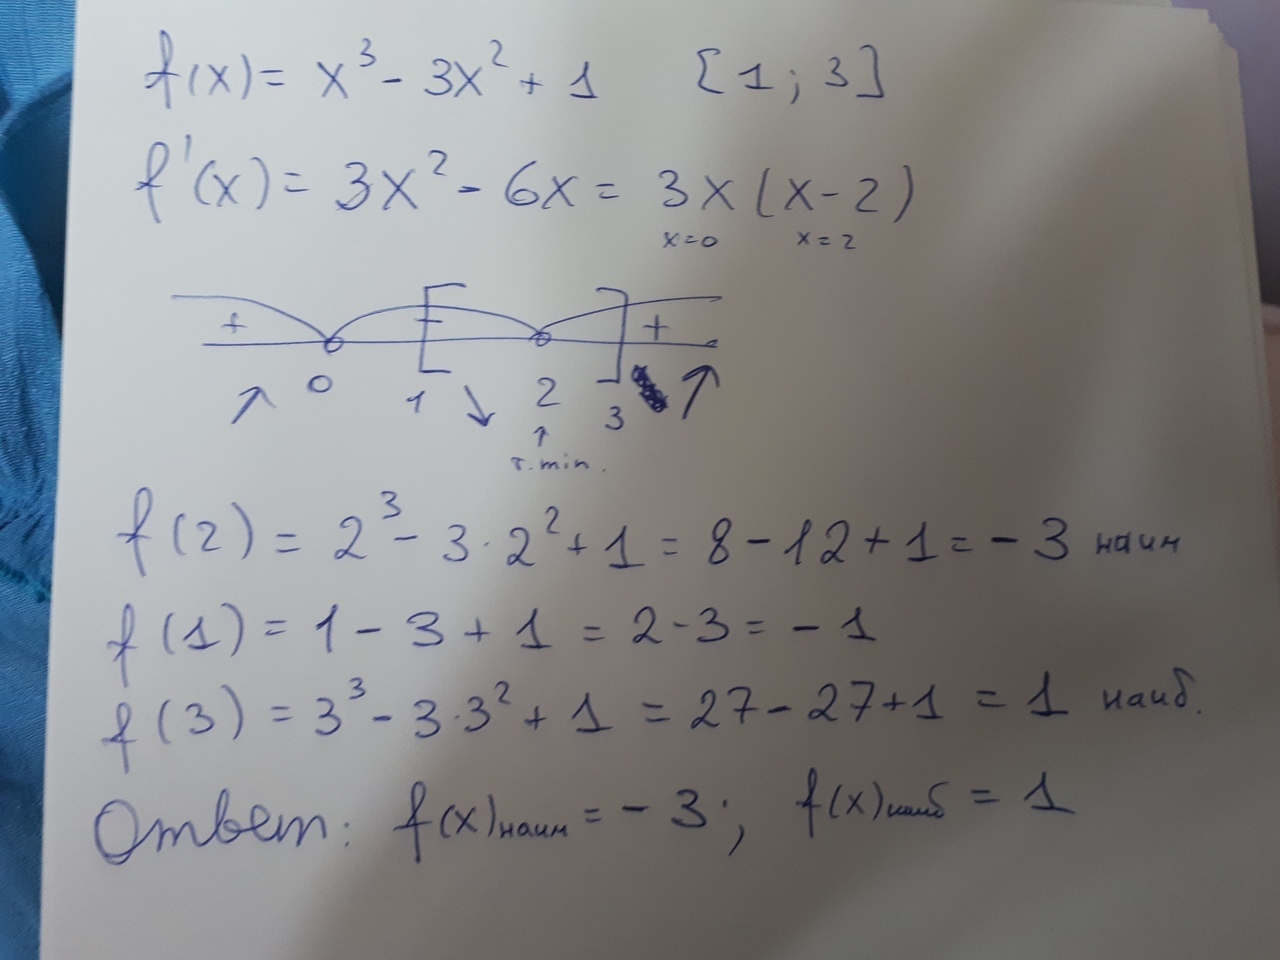 f(x) = x³ - 3x² + 1 [1; 3]
f'(x) = 3x² - 6x = 3x(x-2)
x=0 x=2
+ - +
0 1 2 3
т. min.
f(2) = 2³ - 3·2² + 1 = 8 - 12 + 1 = - 3 наим
f(1) = 1 - 3 + 1 = 2 - 3 = - 1
f(3) = 3³ - 3·3² + 1 = 27 - 27 + 1 = 1 наиб.
Ответ: f(x)наим = - 3; f(x)наиб = 1